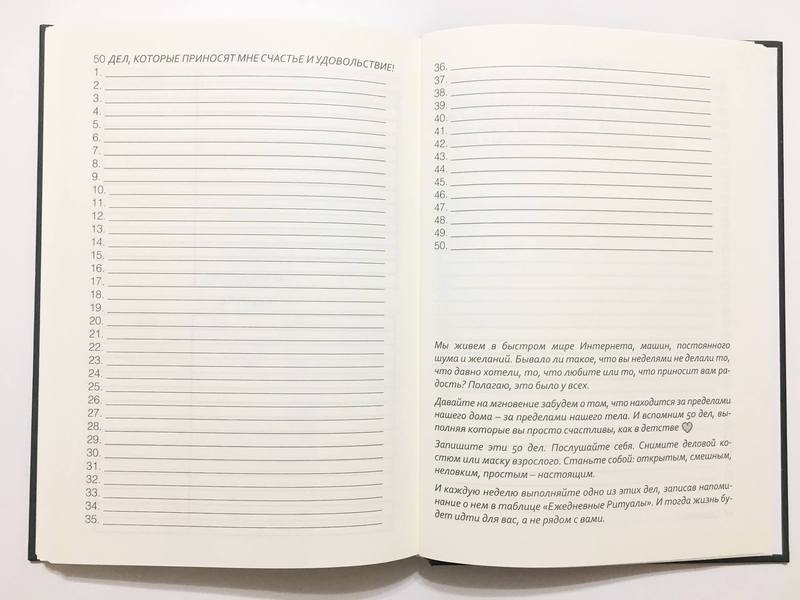 50 ДЕЛ, КОТОРЫЕ ПРИНОСЯТ МНЕ СЧАСТЬЕ И УДОВОЛЬСТВИЕ!
1.
2.
3.
4.
5.
6.
7.
8.
9.
10.
11.
12.
13.
14.
15.
16.
17.
18.
19.
20.
21.
22.
23.
24.
25.
26.
27.
28.
29.
30.
31.
32.
33.
34.
35.
36.
37.
38.
39.
40.
41.
42.
43.
44.
45.
46.
47.
48.
49.
50.
Мы живем в быстром мире Интернета, машин, постоянного
шума и желаний. Бывало ли такое, что вы неделями не делали то,
что давно хотели, то, что любите или то, что приносит вам ра-
дость? Полагаю, это было у всех.
Давайте на мгновение забудем о том, что находится за пределами
нашего дома – за пределами нашего тела. И вспомним 50 дел, вы-
полняя которые вы просто счастливы, как в детстве
Запишите эти 50 дел. Послушайте себя. Снимите деловой ко-
стюм или маску взрослого. Станьте собой: открытым, смешным,
неловким, простым – настоящим.
И каждую неделю выполняйте одно из этих дел, записав напоми-
нание о нем в таблице «Ежедневные Ритуалы». И тогда жизнь бу-
дет идти для вас, а не рядом с вами.